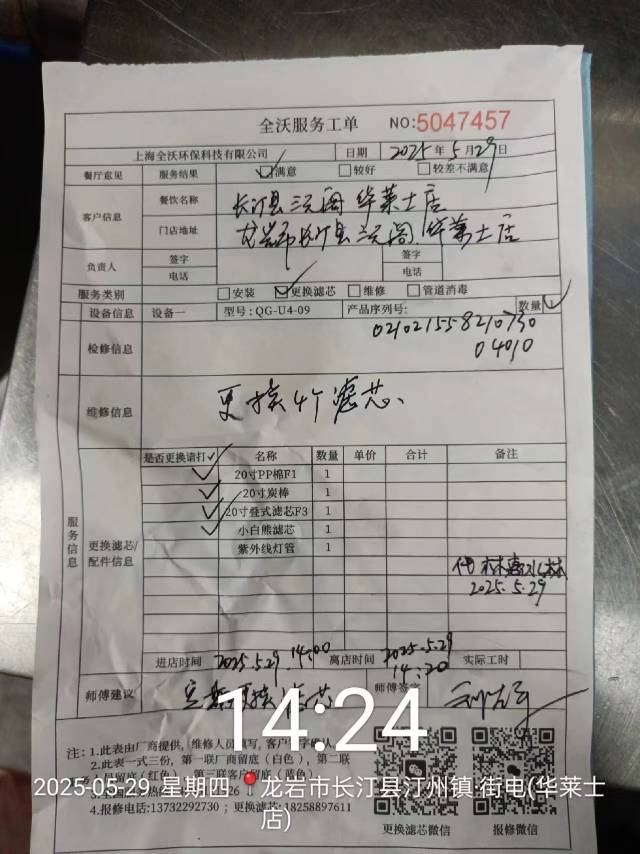 全沃服务工单 NO:5047457
上海全沃环保科技有限公司 日期 2025年5月29日
餐厅意见 服务结果 ☑满意 □较好 □较差不满意
客户信息 餐饮名称 长汀县 华莱士店
门店地址 龙岩市长汀县 华莱士店
负责人 签字 签字
电话 电话
服务类别 □安装 ☑更换滤芯 □维修 □管道消毒
设备信息 设备一 型号:QG-U4-09 产品序列号: 数量 1
021021558210730
04010
检修信息
维修信息 更换4个滤芯、
是否更换请打✓ 名称 数量 单价 合计 备注
✓ 20寸PP棉F1 1
✓ 20寸炭棒 1
✓ 20寸叠式滤芯F3 1
✓ 小白熊滤芯 1
紫外线灯管 1
服务信息
更换滤芯/
配件信息
代
2025.5.29
进店时间 2025.5.29.14:00 离店时间 2025.5.29 14:20 实际工时
师傅建议 定期更换滤芯 师傅签字
14:24
注:1.此表由厂商提供,维修人员填写,客户签字确认。
2.此表一式三份,第一联厂商留底(白色),第二联
留底(红色) 第三联客户留底(蓝色)
2025-05-29 星期四 龙岩市长汀县汀州镇·街电(华莱士
店)
4.报修电话:13732292730 ; 更换滤芯:18258897611
更换滤芯微信 报修微信